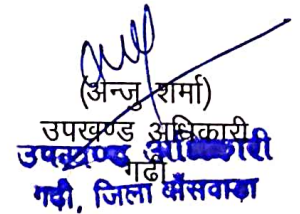 (अन्जु शर्मा)
उपखण्ड अधिकारी
उपखण्ड अधिकारी
गढी
गढी, जिला बाँसवाडा